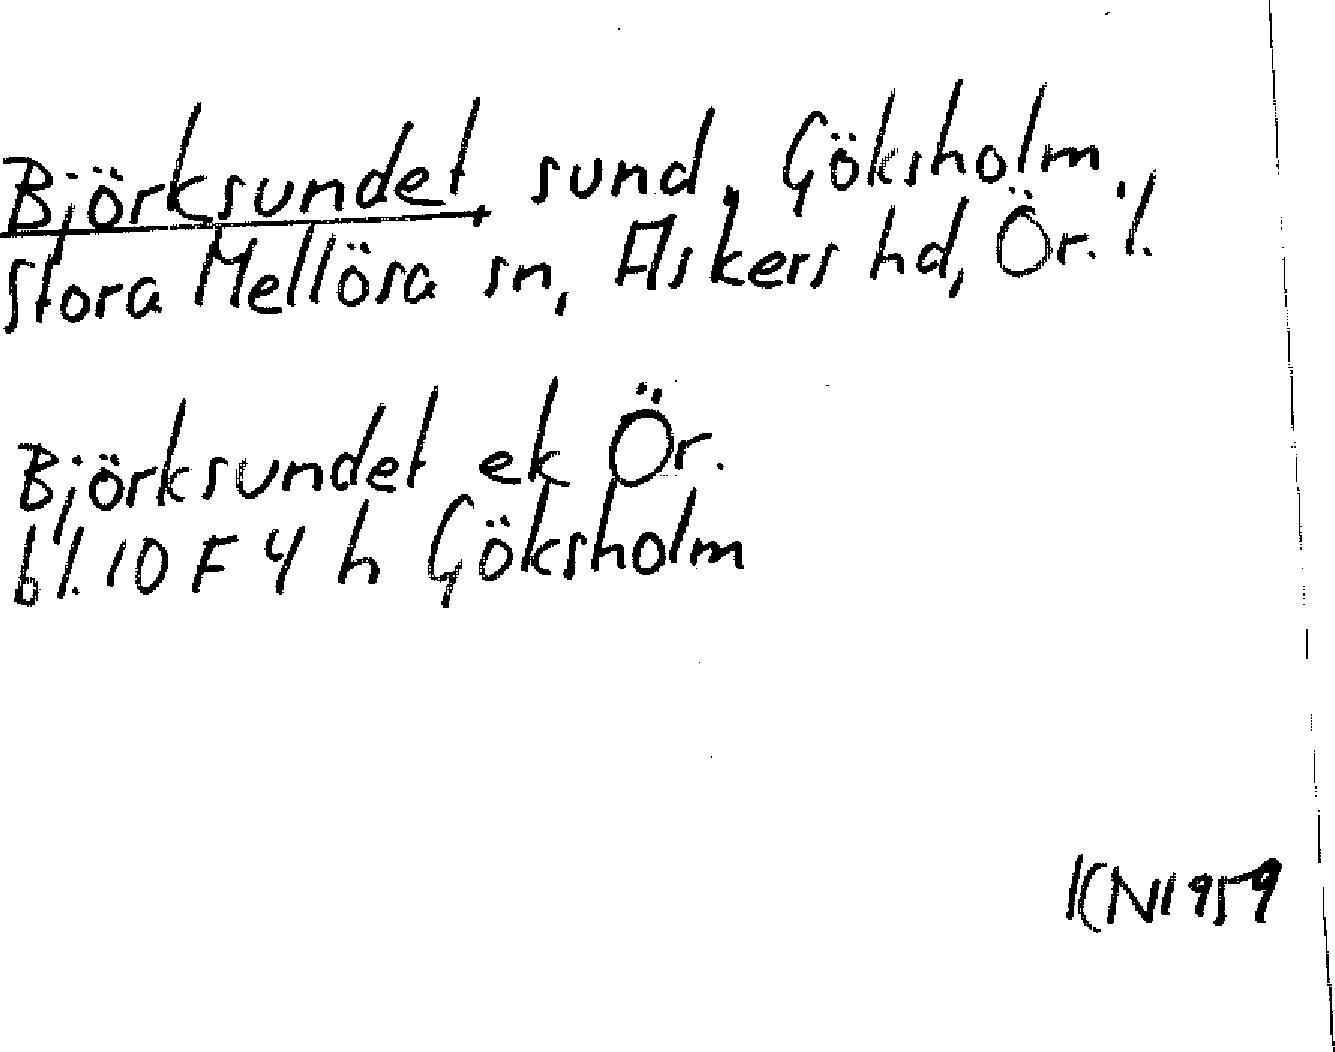 Björksundet, sund, Göksholm,
Stora Mellösa sn, Askers hd, Ör. l.
Björksundet ek Ör.
bl. 10 F 4 h Göksholm
KN 1959